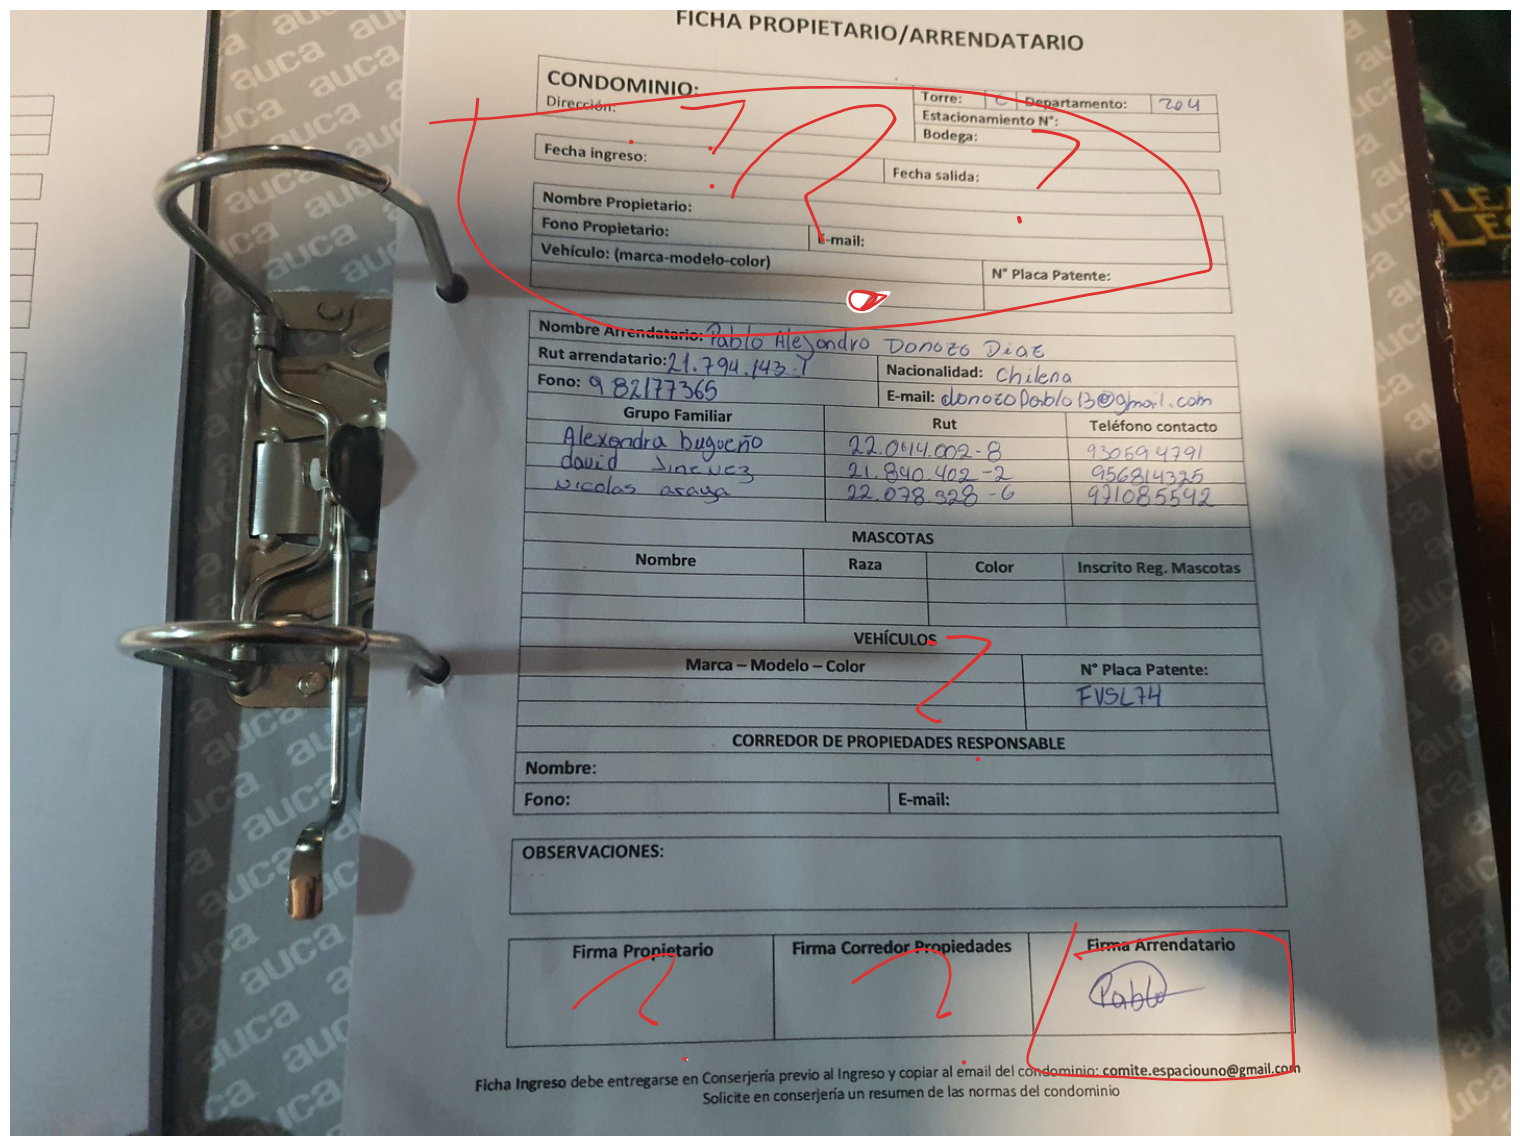 FICHA PROPIETARIO/ARRENDATARIO
CONDOMINIO:
Dirección:
Torre: C Departamento: 204
Estacionamiento N°:
Bodega:
Fecha ingreso: Fecha salida:
Nombre Propietario:
Fono Propietario: E-mail:
Vehículo: (marca-modelo-color) N° Placa Patente:
Nombre Arrendatario: Pablo Alejandro Donozo Diaz
Rut arrendatario: 21.794.143-1 Nacionalidad: Chilena
Fono: 9 82177365 E-mail: donozoPablo13@gmail.com
Grupo Familiar Rut Teléfono contacto
Alexandra bugueño 22.044.002-8 930594791
david Jimenez 21.840.402-2 956814325
Nicolas araya 22.078.328-6 971085592
MASCOTAS
Nombre Raza Color Inscrito Reg. Mascotas
VEHÍCULOS
Marca – Modelo – Color N° Placa Patente:
FVSL74
CORREDOR DE PROPIEDADES RESPONSABLE
Nombre:
Fono: E-mail:
OBSERVACIONES:
Firma Propietario Firma Corredor Propiedades Firma Arrendatario
Pablo
Ficha Ingreso debe entregarse en Conserjería previo al Ingreso y copiar al email del condominio: comite.espaciouno@gmail.com
Solicite en conserjería un resumen de las normas del condominio
auca